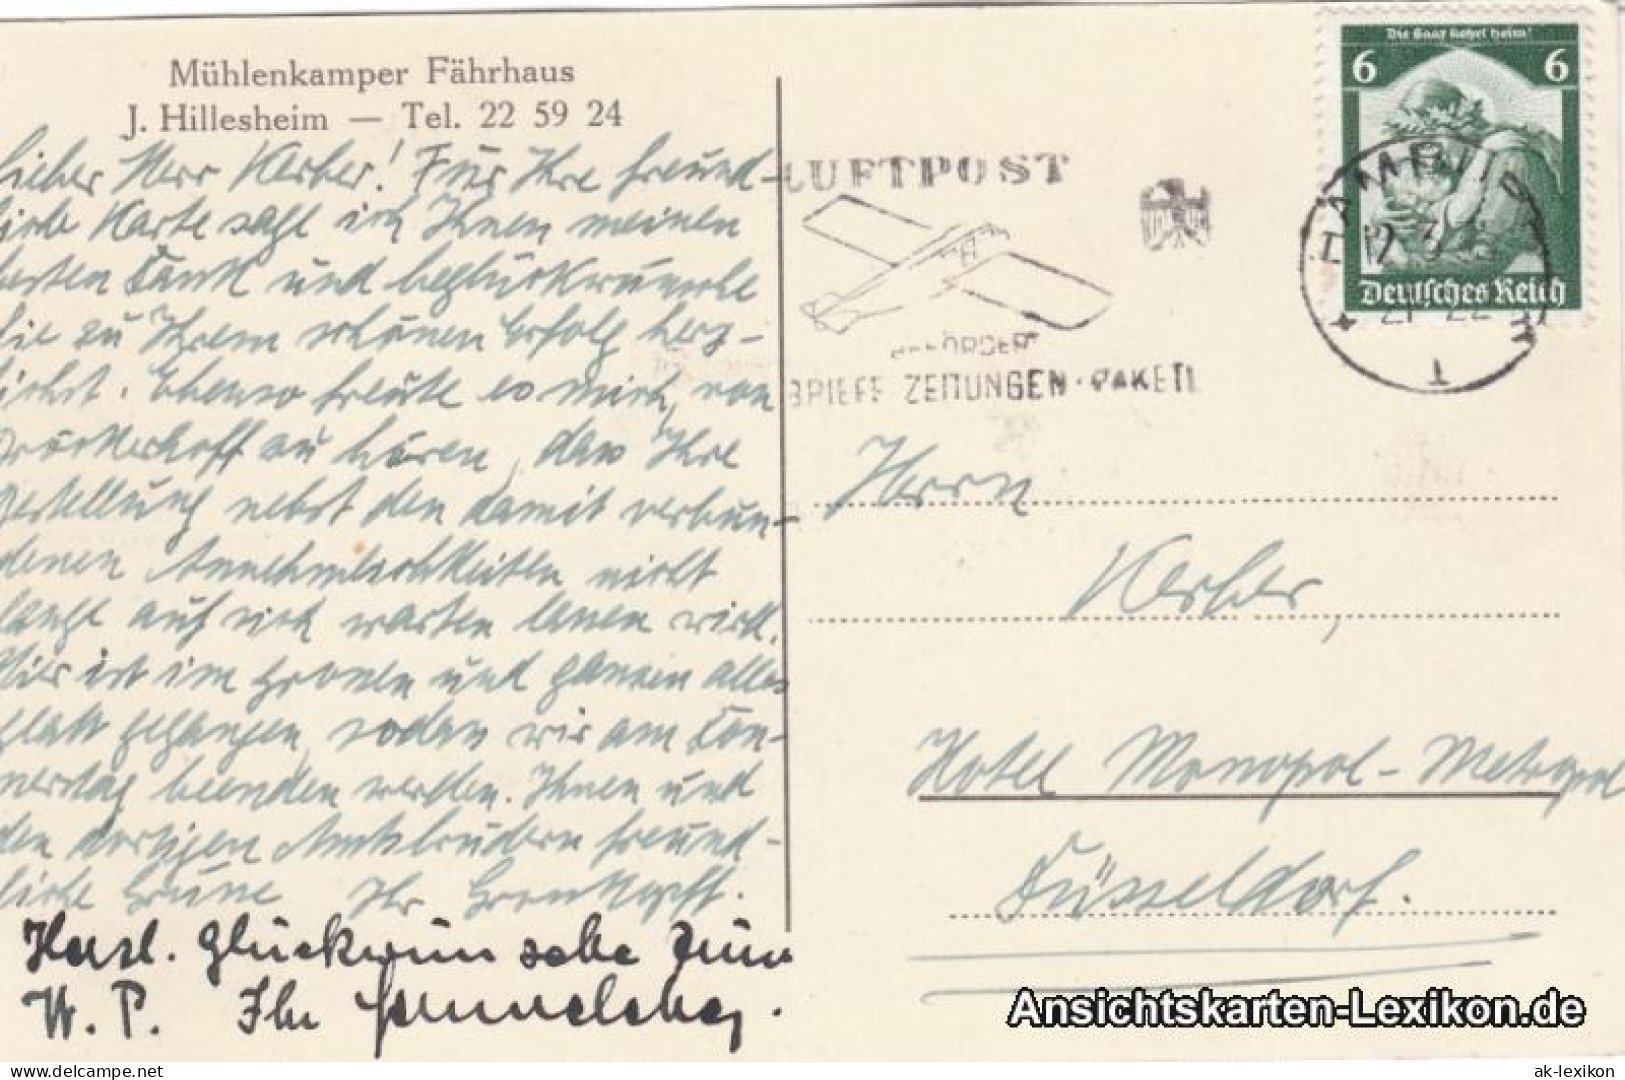 Mühlenkamper Fährhaus
J. Hillesheim — Tel. 22 59 24
Lieber Herr Kerber! Für Ihre freund-
liche Karte sage ich Ihnen meinen
besten Dank und beglückwünsche
Sie zu Ihrem schönen Erfolg herz-
lichst. Ebenso freute es mich, von
zu hören, dass Ihre
Bestellung nebst den damit verbun-
denen Annehmlichkeiten nicht
lange auf sich warten lassen wird.
Hier ist im grossen und ganzen alles
glatt gegangen, sodass wir am Don-
nerstag beenden werden. Ihnen und
den dortigen Amtsbrüdern freund-
liche Grüsse Ihr
Herzl. Glückwünsche zum
W. P. Ihr
LUFTPOST
BEFÖRDERT
BRIEFE ZEITUNGEN · PAKETE
Die Saar kehrt heim!
6 6
Deutsches Reich
12.3.
21-22
1
Herrn
Kerber,
Hotel Monopol-Metropol
Düsseldorf.
Ansichtskarten-Lexikon.de
ak-lexikon
delcampe.net